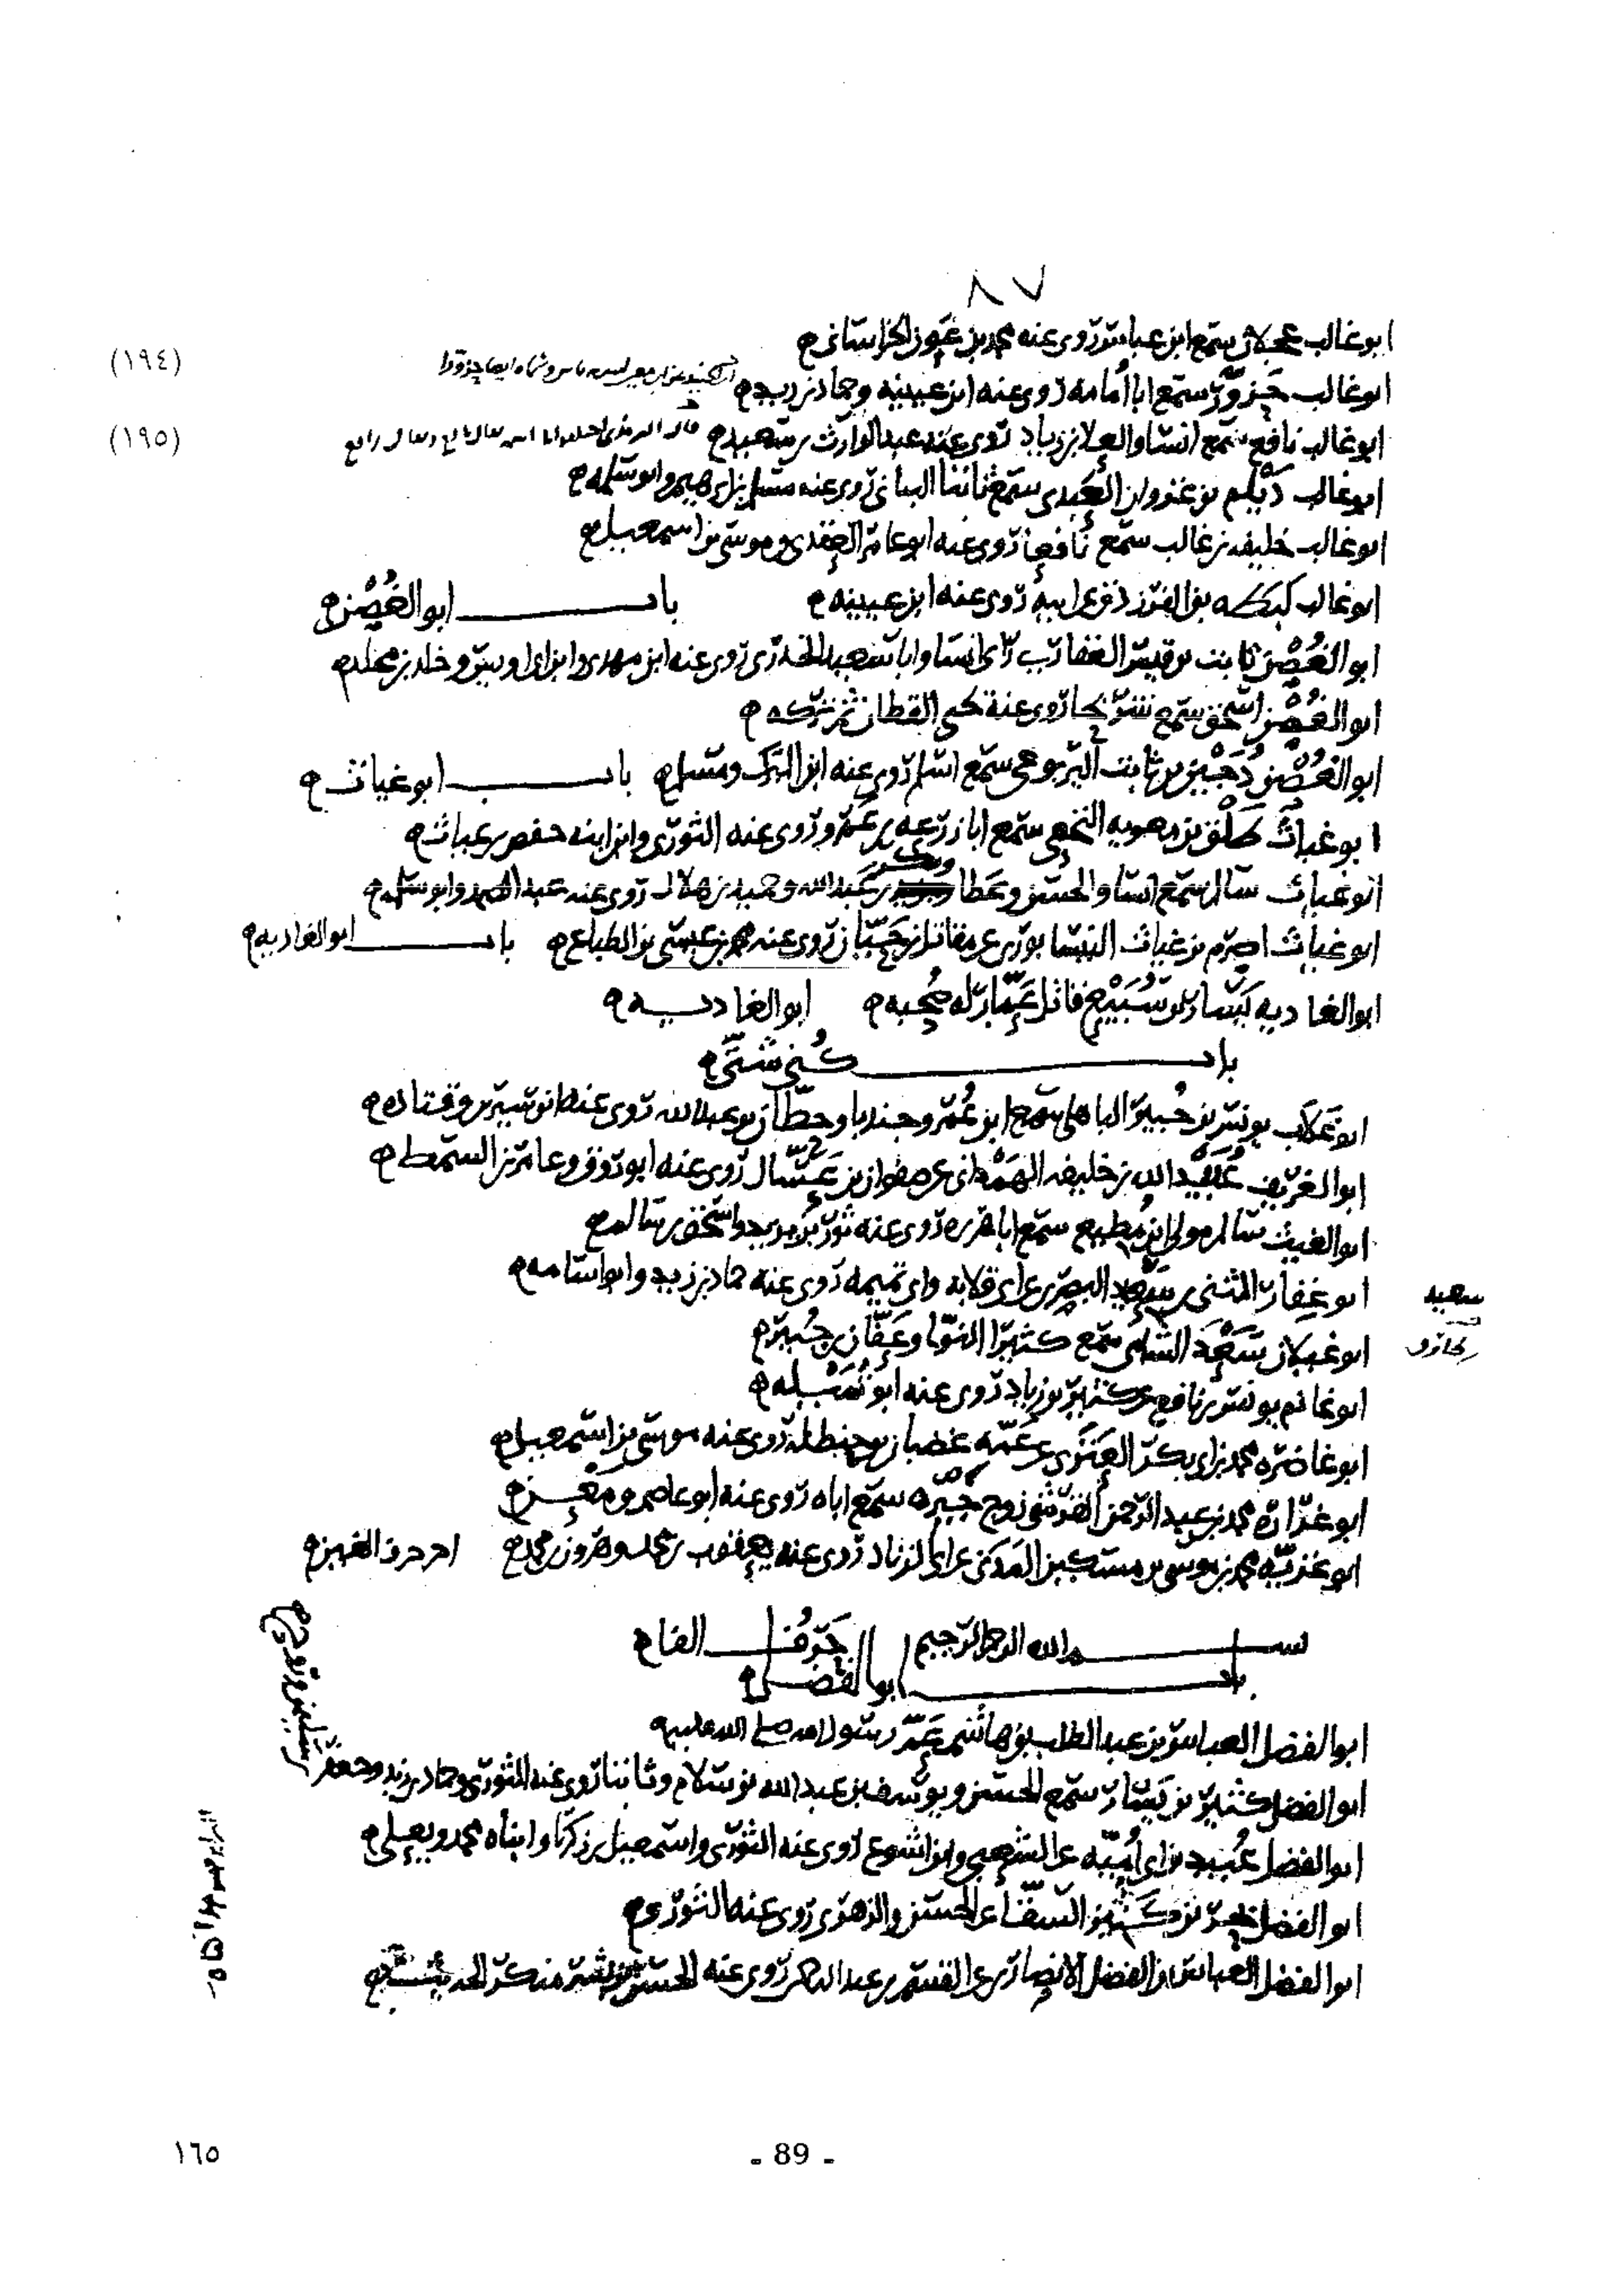 ٨٧
ابو غالب عجلان سمع ابن عباس روى عنه محمد بن عمر الخراساني
(١٩٤)
ابو غالب حزور سمع ابا أمامه روى عنه ابن عيينه وحماد بن زيد
(١٩٥)
ابو غالب نافع سمع انسا والعلا بن زياد روى عنه عبد الوارث بن سعيد
ابو غالب ديلم بن غزوان العبدي سمع ثابتا البناني روى عنه مسلم بن ابرهيم وابو سلمه
ابو غالب خليفه بن غالب سمع نافعا روى عنه ابو عامر العقدي وموسى بن اسمعيل
ابو غالب كبكه بن الفرزدق عن ابيه روى عنه ابن عيينه باب ابو الغُصْن
ابو الغُصْن ثابت بن قيس الغفاري رأى انسا وابا سعيد الخدري روى عنه ابن مهدي وابن ابي اويس وخلد بن مخلد
ابو الغُصْن اسحق سمع شريحا روى عنه يحيى القطان ثم تركه
ابو الغُصْن دُجَيْن بن ثابت اليربوعي سمع اسلم روى عنه ابن المبرك ومسلم باب ابو غياث
ابو غياث طَلْق بن معويه النخعي سمع ابا زرعه بن عمرو روى عنه الثوري وابن ابنه حفص بن غياث
ابو غياث سالم سمع انسا والحسن وعطا وبكر بن عبد الله وحميد بن هلال روى عنه عبد الصمد وابو سلمه
ابو غياث اصرم بن غياث النيسابوري عن مقاتل بن حيّان روى عنه محمد بن عيسى بن الطباع باب ابو الغاديه
ابو الغاديه يسار بن سُبَيْع قاتل عمّار له صُحبه ابو الغاديه
باب كُنى شتّى
ابو غلاب يونس بن جُبير الباهلي سمع ابن عُمر وجندبا وحطّان بن عبد الله روى عنه ابن سيرين وقتاده
ابو الغريف عُبَيْد الله بن خليفه الهَمْداني عن صفوان بن عسّال روى عنه ابو روق وعامر بن السمط
ابو الغيث سالم مولى ابن مُطيع سمع ابا هريره روى عنه ثور بن زيد واسحق بن سالم
ابو غفار المثنى بن سعيد البصري عن ابي قلابه وابي تميمه روى عنه حماد بن زيد وابو اسامه
سعيد
ابو غيلان سَعْد السُلمي سمع كثير النوّا وعفّان بن جُبير
ابو غانم يونس بن نافع عن كثير بن زياد روى عنه ابو تُمَيْله
ابو غاضره محمد بن ابي بكر العَنَزي عن عَمّه غضبان بن حنظله روى عنه موسى بن اسمعيل
ابو غَرّاره محمد بن عبد الرحمن القرشي زوج جَبْره سمع اباه روى عنه ابو عاصم ومعن
ابو غَزيّه محمد بن موسى بن مسكين المدني عن ابن ابي الزناد روى عنه يعقوب بن محمد وهرون بن محمد اخر حرف الغين
بسم الله الرحمن الرحيم حَرْفُ الفا
باب ابو الفضل
ابو الفضل العباس بن عبد المطلب بن هاشم عَمّ رسول الله صلى الله عليه
ابو الفضل كثير بن يسار سمع الحسن ويوسف بن عبد الله بن سلام وثابتا روى عنه الثوري وحماد بن زيد وجعفر
بن سليمن ونوح
ابو الفضل عُبيد بن ابي أُميّه عن الشعبي وابن اشوع روى عنه الثوري واسمعيل بن زكريا وابناه محمد ويعلى
ابو الفضل بحر بن كَنيز السقّا عن الحسن والزهري روى عنه الثوري
ابو الفضل العباس بن الفضل الانصاري عن القسم بن عبد الرحمن روى عنه الحسن بن بشر منكر الحديث
١٦٥
- 89 -